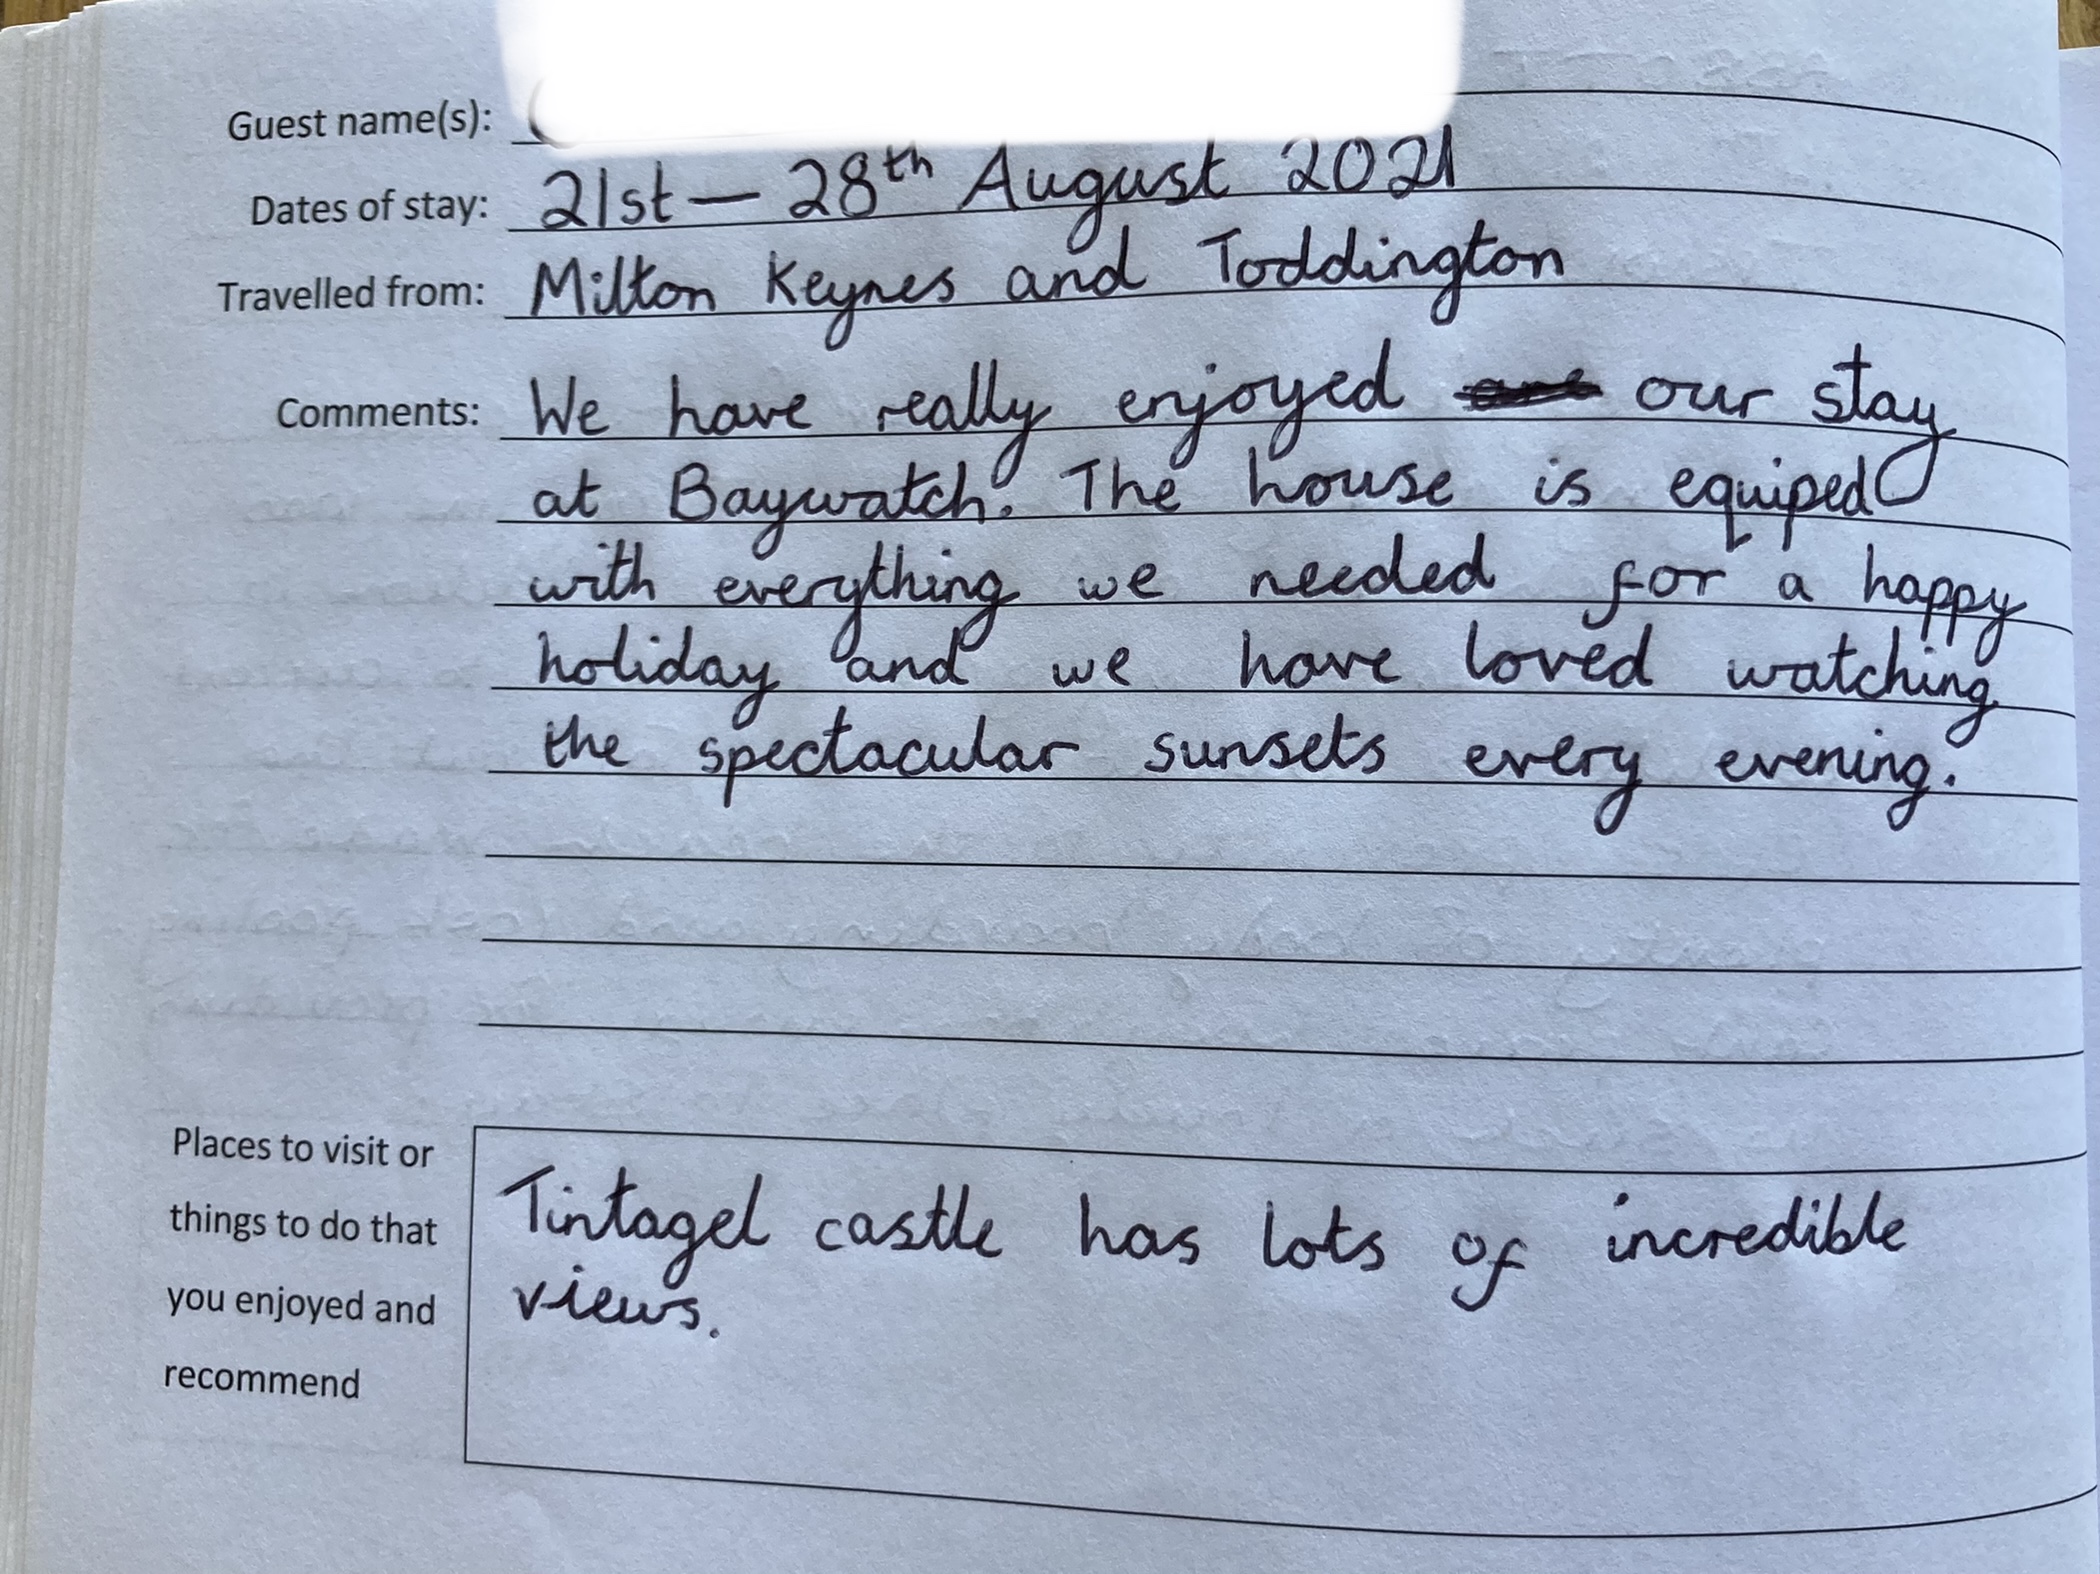 Guest name(s):
Dates of stay: 21st — 28th August 2021
Travelled from: Milton Keynes and Toddington
Comments: We have really enjoyed our stay
at Baywatch. The house is equiped
with everything we needed for a happy
holiday and we have loved watching
the spectacular sunsets every evening.
Places to visit or
things to do that
you enjoyed and
recommend
Tintagel castle has lots of incredible
views.